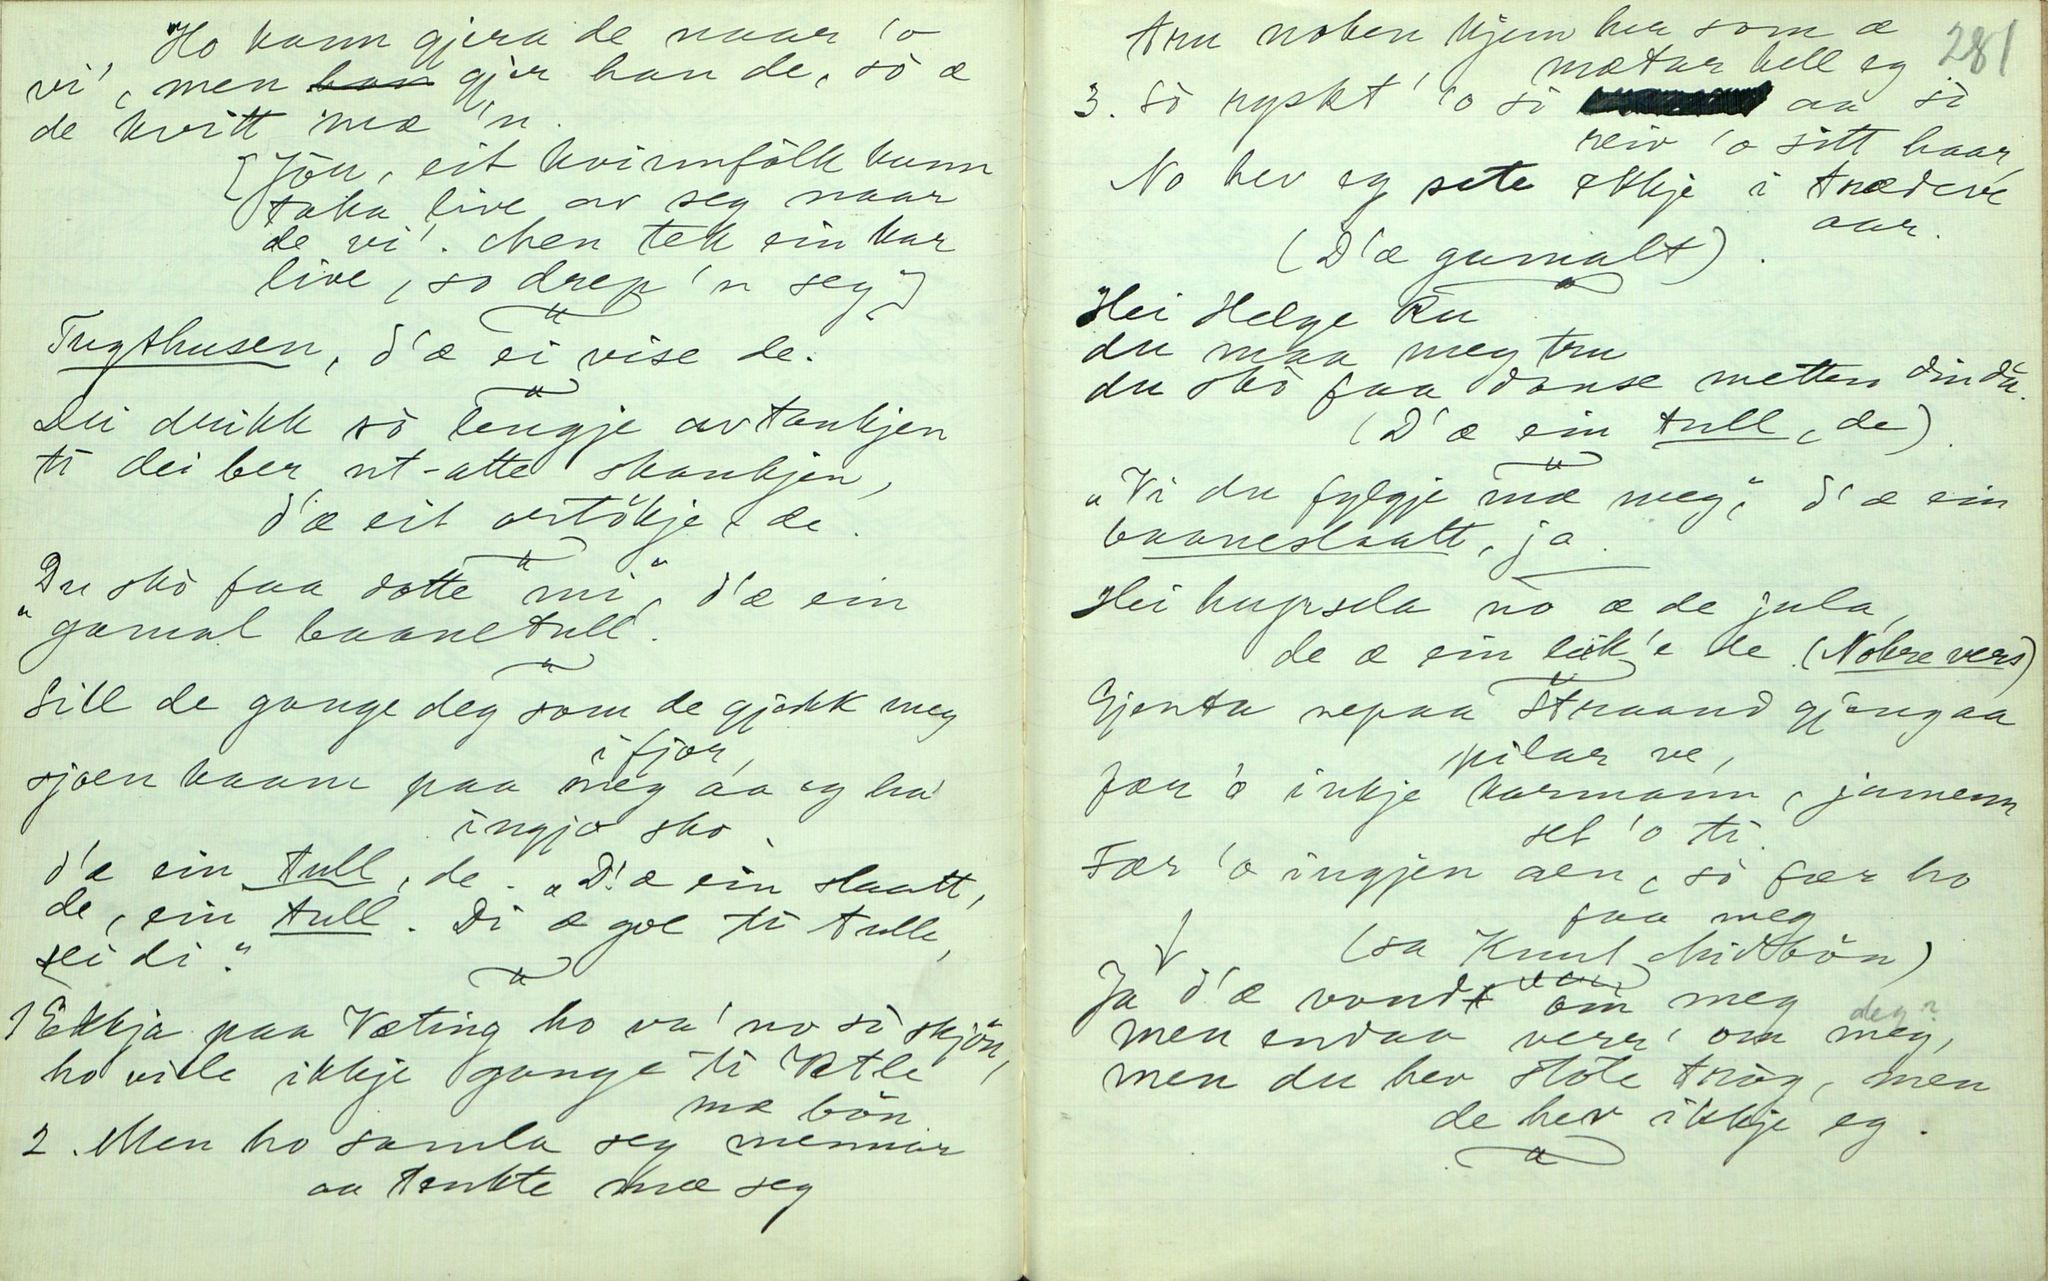 Ho kann gjera de naar 'o
vi', men han gjer han de, sò æ
de kvitt mæ 'n.
[Jòu, eit kvinnfolk kann
taka live av seg naar
de vi'. Men tek ein kar
live, so drep 'n seg]
Tugthusen, d'æ ei vise de.
Dei drikk sò lengje av tankjen
ti dei ber ut-atte skankjen,
d'æ eit verstökje de.
Du skò faa dotte mi", d'æ ein
" gamal baanetull.
Sill de gange deg som de gjekk meg
i fjor,
sjoen kaam paa meg aa eg ha'
ingjo sko.
d'æ ein tull, de. „D'æ ein slaatt,
de, ein tull. Di æ goe ti tulle,
sei di."
1 Ekkja paa Væting ho va' no sò skjön,
ho ville ikkje gange ti Vetle
mæ bön
2. Men ho samla seg mennar
aa tenkte mæ seg
281
tru noken kjem her som æ
mætar hell eg
3. Sò ryskt' 'o sò aa sò
reiv 'o sitt haar,
No hev eg sete ekkje i trædeve
aar.
(D'æ gamalt).
Hei Helge Ru
du maa meg tru
du skò faa danse metten din du.
(D'æ ein tull, de).
„Vi du fylgje mæ meg", d'æ ein
baaneslaatt, ja.
Hei hupsela nò æ de jula,
de æ ein leik'e de (Nokre vers)
Gjenta nepaa Straand gjeng aa
pilar ve,
fær 'o inkje karmann, jamenn
set 'o ti.
Fær 'o ingjen aen, sò fær ho
faa meg
(sa Knut Midtbön)
Ja d'æ vondt om meg
deg?
men endaa verr' om meg,
men du hev stole tròg, men
de hev ikkje eg.